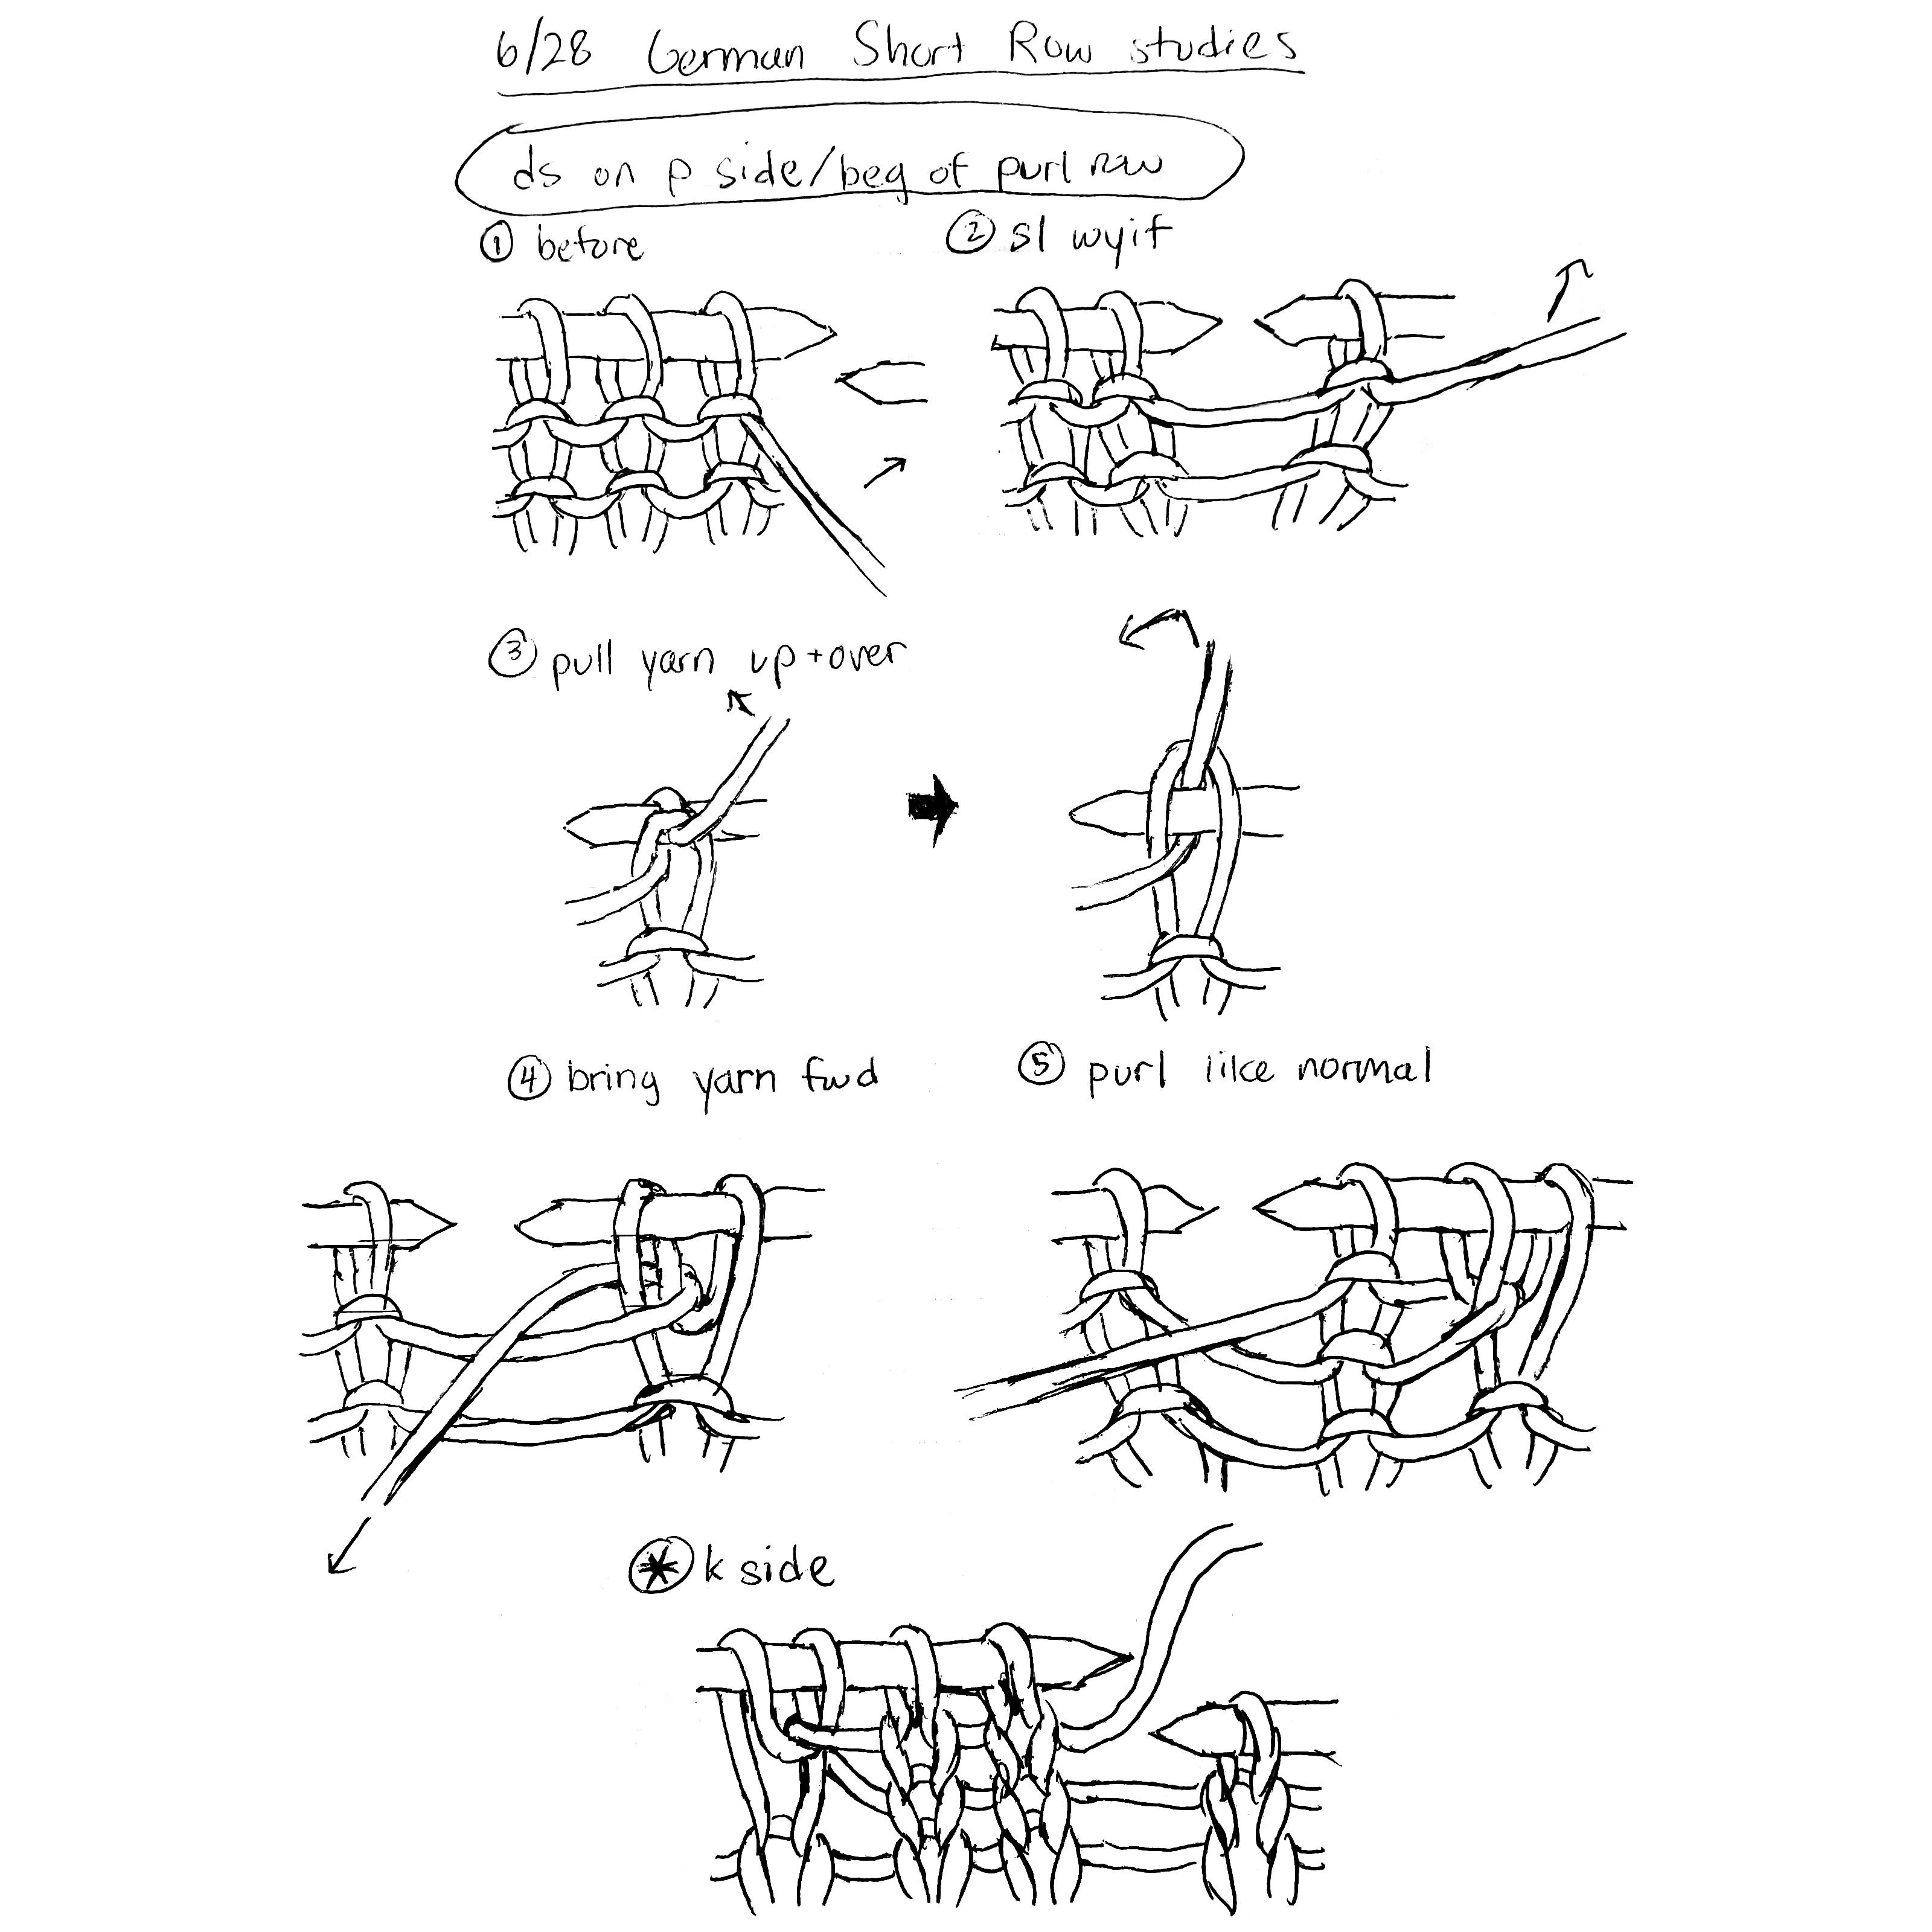 6/28 German Short Row studies
ds on p side/beg of purl row
① before
② sl wyif
③ pull yarn up+over
④ bring yarn fwd
⑤ purl like normal
✱ k side